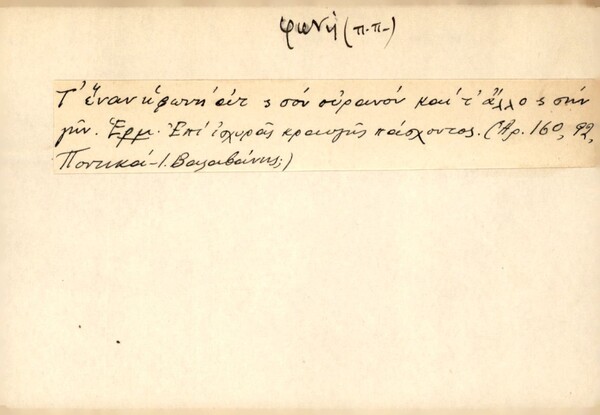 φωνή (π.π.)
Τ' ἕναν ἡ φωνή ἀτ ς σόν οὐρανόν καί τ' ἄλλο ς σήν
γῆν. Ἑρμ. Ἐπί ἰσχυρᾶς κραυγῆς πάσχοντος. (Ἀρ. 160, 92,
Ποντικά - Ι. Βαλαβάνης;)